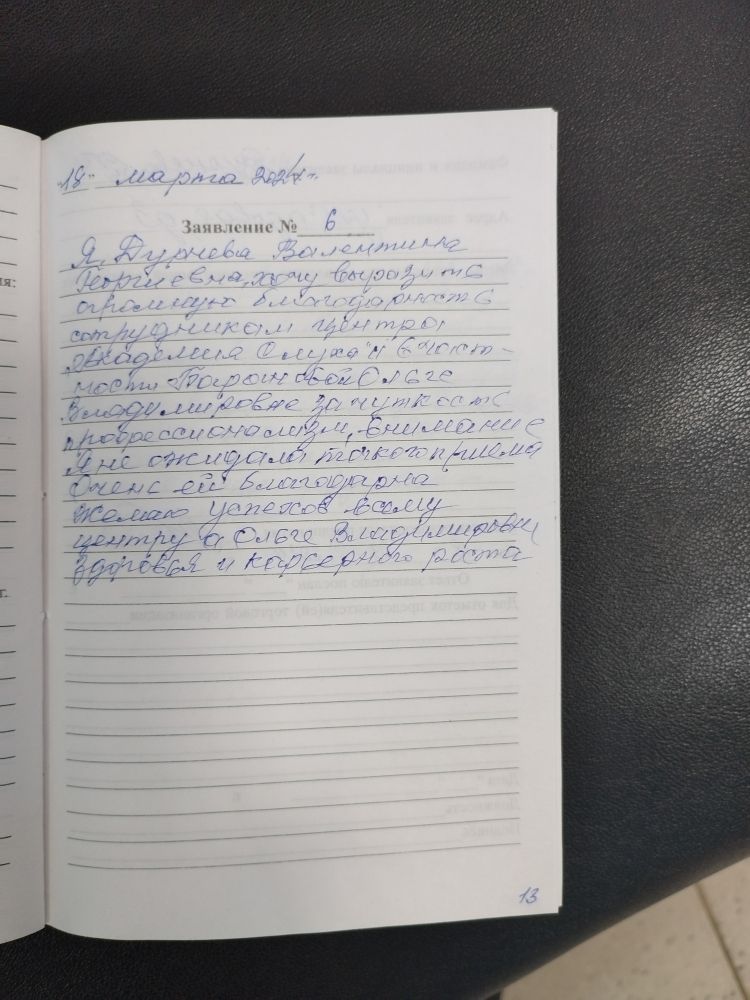 "18" марта 2024 г.
Заявление № 6
Я, Дурнева Валентина
Георгиевна, хочу выразить
огромную благодарность
сотрудникам центра
"Академия Слуха" и в част-
ности Тарановой Ольге
Владимировне за чуткость
профессионализм, внимание
Я не ожидала такого приема
Очень ей благодарна
Желаю успехов всему
центру а Ольге Владимировне
здоровья и карьерного роста
13